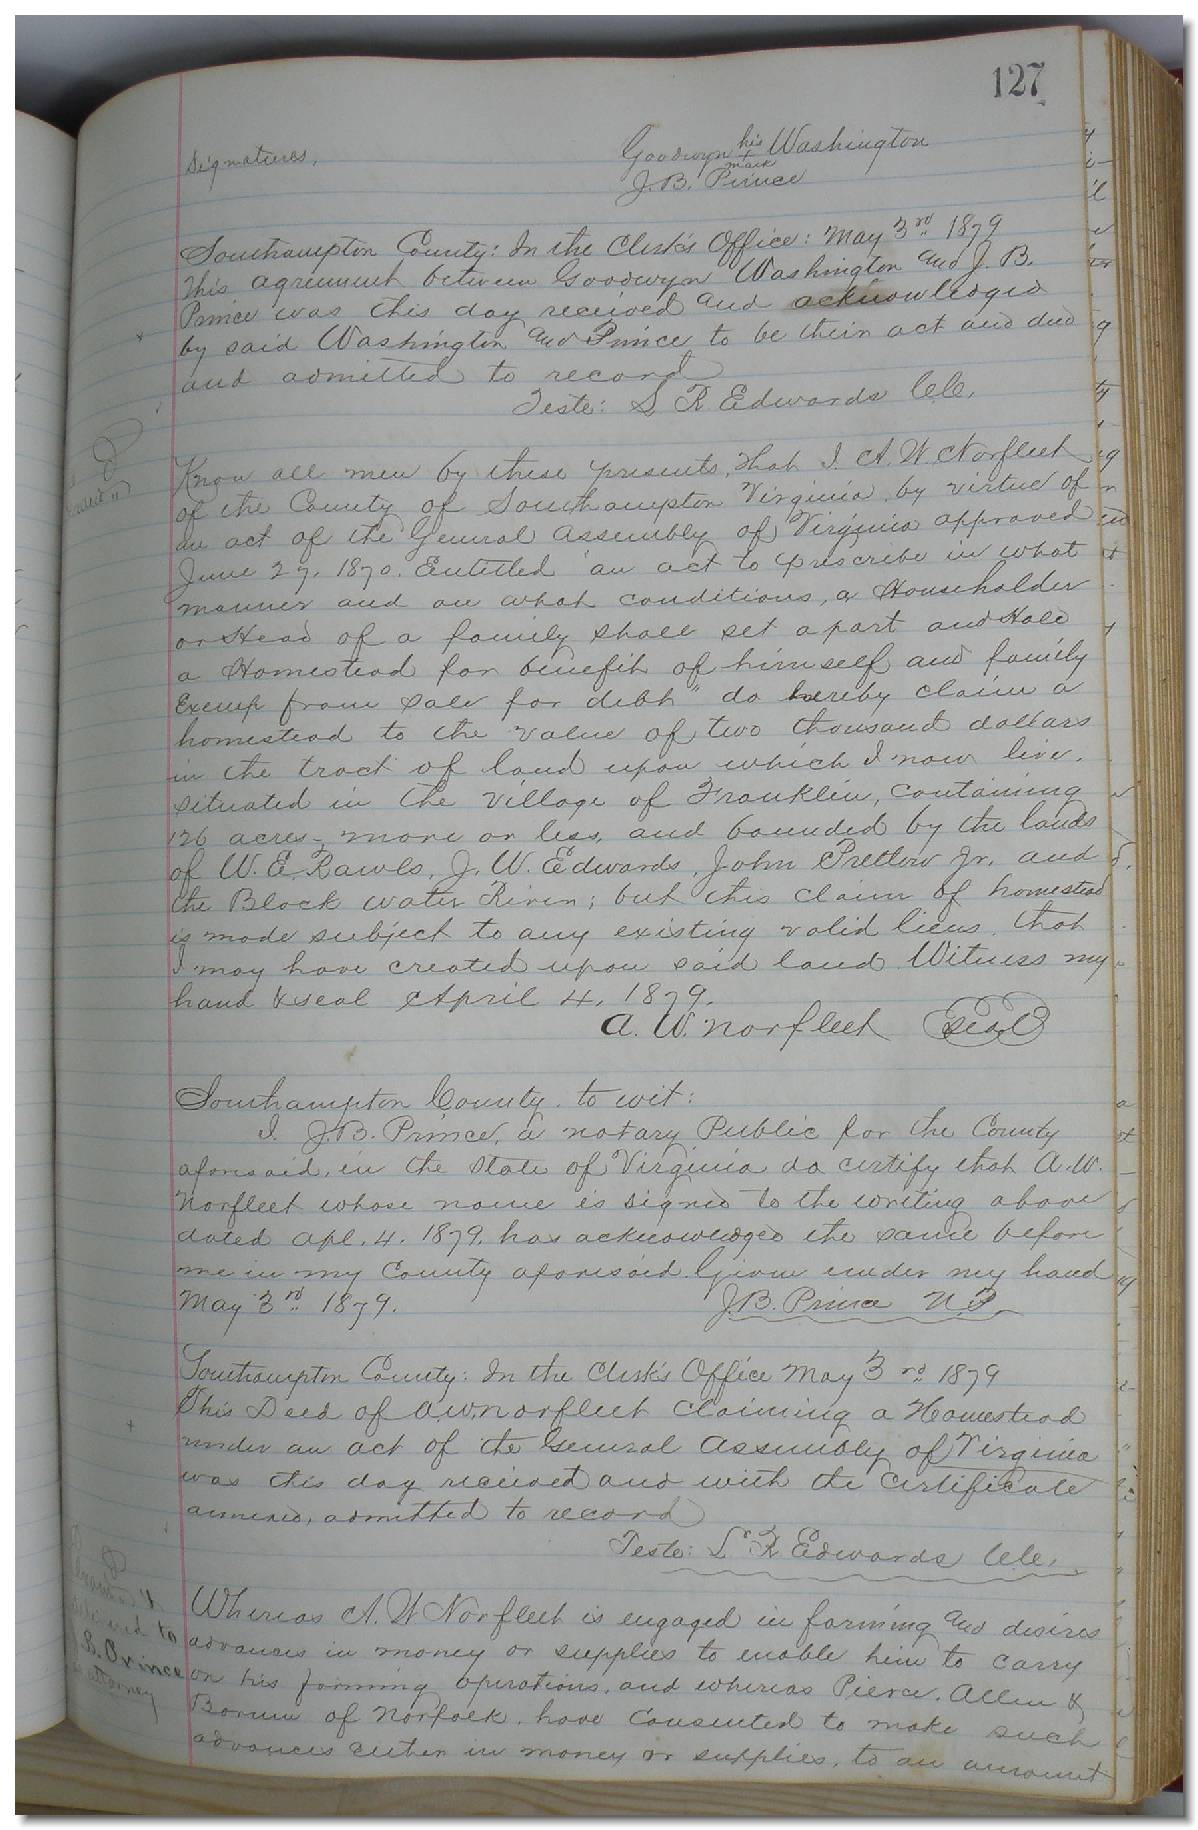 127
Signatures,
Goodwyn his Washington
mark
J. B. Prince
Southampton County: In the Clerk's Office: May 3rd 1879
This agreement between Goodwyn Washington and J. B.
Prince was this day received and acknowledged
by said Washington and Prince to be their act and deed
and admitted to record
Teste: L. R. Edwards Clk.
Know all men by these presents, that I. A. W. Norfleet
of the County of Southampton Virginia, by virtue of
an act of the General Assembly of Virginia approved
June 27, 1870. Entitled "an act to prescribe in what
manner and on what conditions, a Householder
or Head of a family shall set apart and Hold
a Homestead for benefit of himself and family
Exemp from sale for debt" do hereby claim a
homestead to the value of two thousand dollars
in the tract of land upon which I now live,
situated in the village of Franklin, containing
126 acres, more or less, and bounded by the lands
of W. E. Rawls, J. W. Edwards, John Pretlow Jr. and
the Black water River; but this claim of homestead
is made subject to any existing valid liens, that
I may have created upon said land. Witness my
hand & seal April 4, 1879.
A. W. Norfleet Seal
Southampton County, to wit:
I. J. B. Prince, a notary Public for the County
aforesaid, in the State of Virginia do certify that A. W.
Norfleet whose name is signed to the writing above
dated Apl. 4. 1879, has acknowledged the same before
me in my County aforesaid. Given under my hand
May 3rd 1879.
J. B. Prince N. P.
Southampton County: In the Clerk's Office May 3rd 1879
This Deed of A. W. Norfleet Claiming a Homestead
under an act of the General Assembly of Virginia
was this day received and with the Certificate
annexed, admitted to record
Teste: L. R. Edwards Clk.
Whereas A. W Norfleet is engaged in farming and desires
advances in money or supplies to enable him to carry
on his farming operations, and whereas Pierce, Allen &
Borum of Norfolk, have Consented to make such
advances either in money or supplies, to an amount
to
B. Prince
attorney